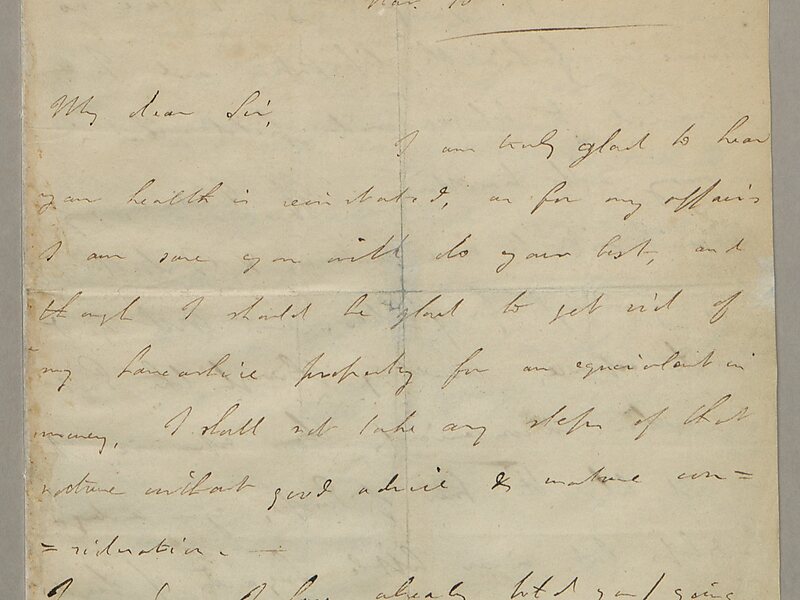 My dear Sir,
I am truly glad to hear
your health is reinstated, as for my affairs
I am sure you will do your best, and
though I should be glad to get rid of
my Lancashire property for an equivalent in
money, I shall not take any steps of that
nature without good advice & mature con=
=sideration. —
I have already told you I going